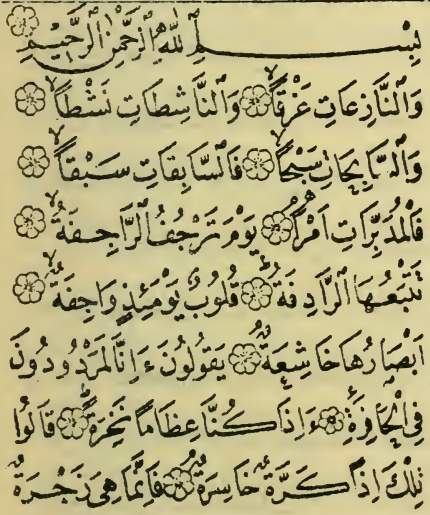 بِسْمِ ٱللّٰهِ ٱلرَّحْمٰنِ ٱلرَّحِيمِ
وَٱلنَّازِعَاتِ غَرْقاً ۝ وَٱلنَّاشِطَاتِ نَشْطاً ۝
وَٱلسَّابِحَاتِ سَبْحاً ۝ فَٱلسَّابِقَاتِ سَبْقاً ۝
فَٱلْمُدَبِّرَاتِ اَمْراً ۝ يَوْمَ تَرْجُفُ ٱلرَّاجِفَةُ ۝
تَتْبَعُهَا ٱلرَّادِفَةُ ۝ قُلُوبٌ يَوْمَئِذٍ وَاجِفَةٌ ۝
اَبْصَارُهَا خَاشِعَةٌ ۝ يَقُولُونَ ءَاِنَّا لَمَرْدُودُونَ
فِي ٱلْحَافِرَةِ ۝ ءَاِذَا كُنَّا عِظَاماً نَخِرَةً ۝ قَالُوا
تِلْكَ اِذاً كَرَّةٌ خَاسِرَةٌ ۝ فَاِنَّمَا هِيَ زَجْرَةٌ